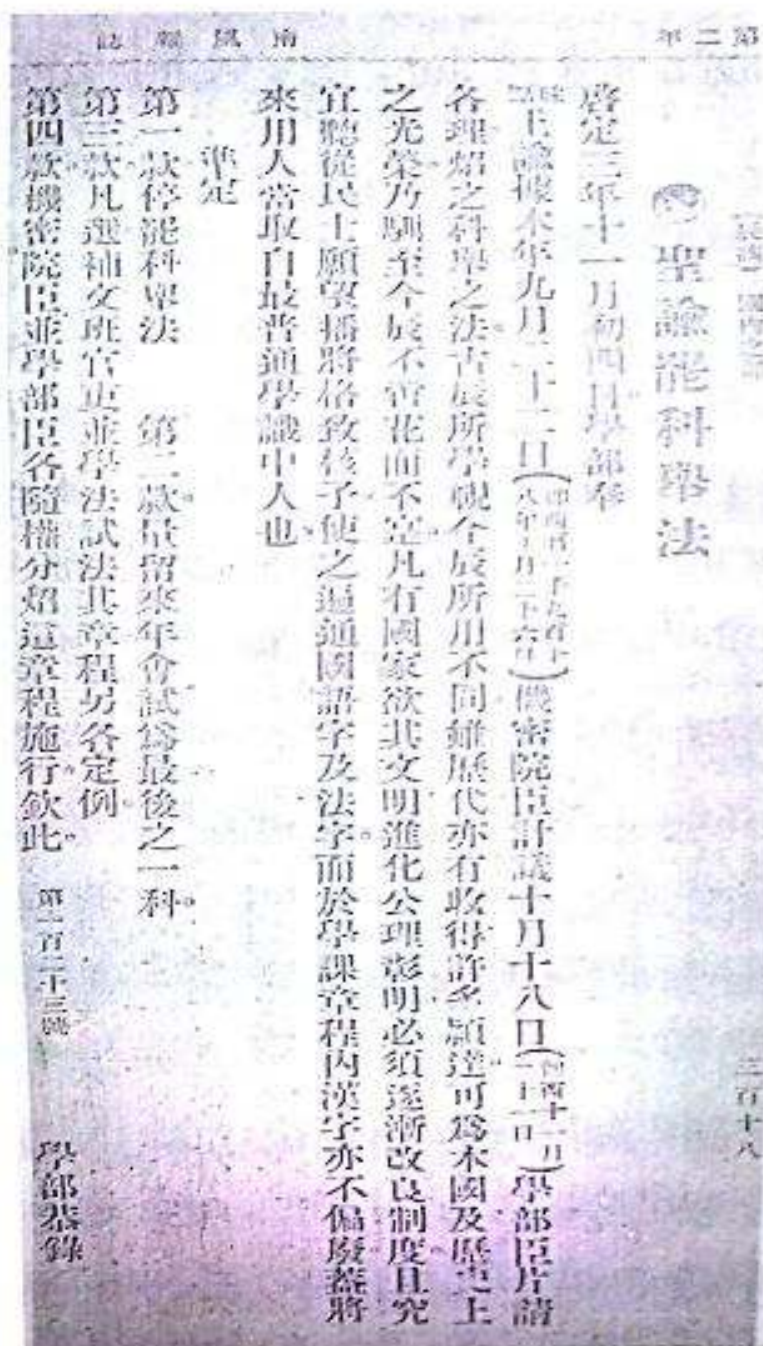 南風報誌
第二年
三百十八
聖諭罷科舉法
啓定三年十一月初四日學部奉
上諭據本年九月二十二日(即西曆一千九百十八年十月二十六日)機密院臣計議十月十八日(西十一月二十一日)學部臣片請
各理焒之科舉之法古辰所學視今辰所用不同雖歷代亦有收得許多穎達可爲本國及歷史上
之光榮乃馴至今辰不實花而不空凡有國家欲其文明進化公理彰明必須逐漸改良制度且究
宜聽從民士願望播將格致後子使之遍通國語字及法字而於學課章程內漢字亦不偏廢蓋將
來用人當取自最普通學識中人也
準定
第一款停罷科舉法 第二款量留來年會試爲最後之一科
第三款凡選補文班官吏並學法試法其章程另各定例
第四款機密院臣並學部臣各隨權分焒這章程施行欽此 第一百二十三號 學部恭錄